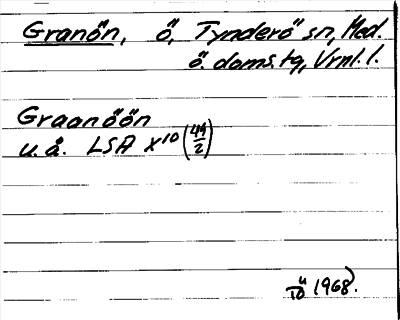 Granön, ö, Tynderö sn, Med.
ö. doms.tg, Vrnl. l.
Graanöön
u.å. LSA X10 (49/2)
11/10 1968.